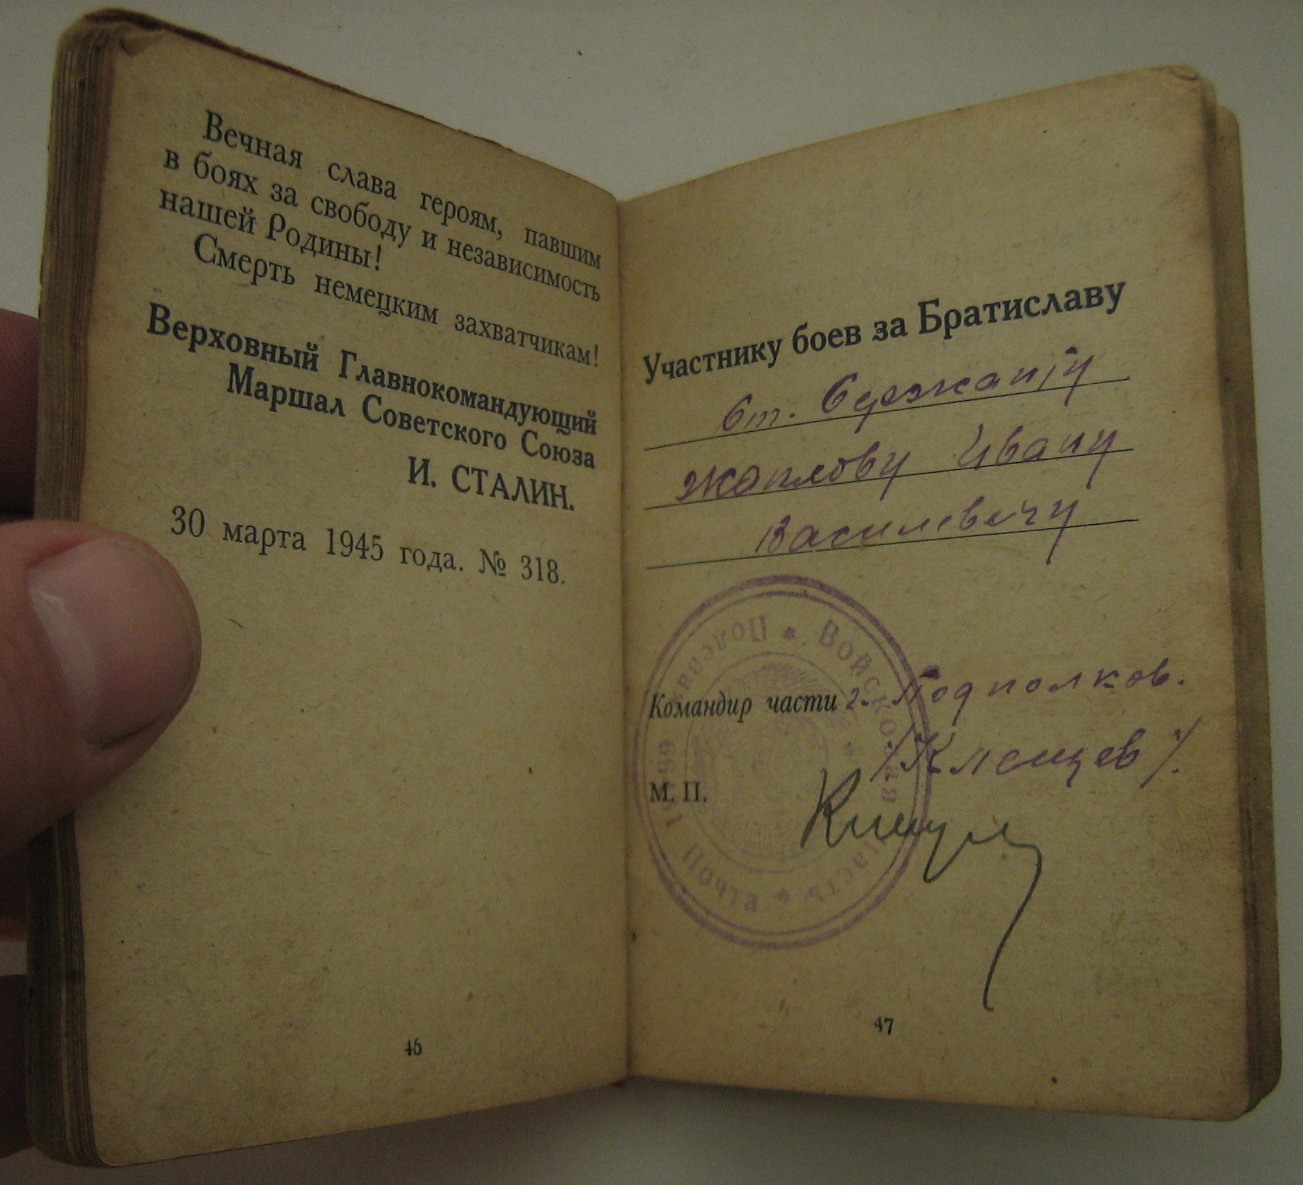 Вечная слава героям, павшим
в боях за свободу и независимость
нашей Родины!
Смерть немецким захватчикам!
Верховный Главнокомандующий
Маршал Советского Союза
И. СТАЛИН.
30 марта 1945 года. № 318.
46
Участнику боев за Братиславу
Ст. Сержанту
Ивану
Василевичу
Войсковая часть * Полевая Почта
Командир части г. Подполков.
/Клещев/.
М. П.
47